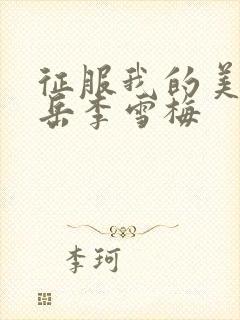 征服我的美
岳李雪梅
李珂